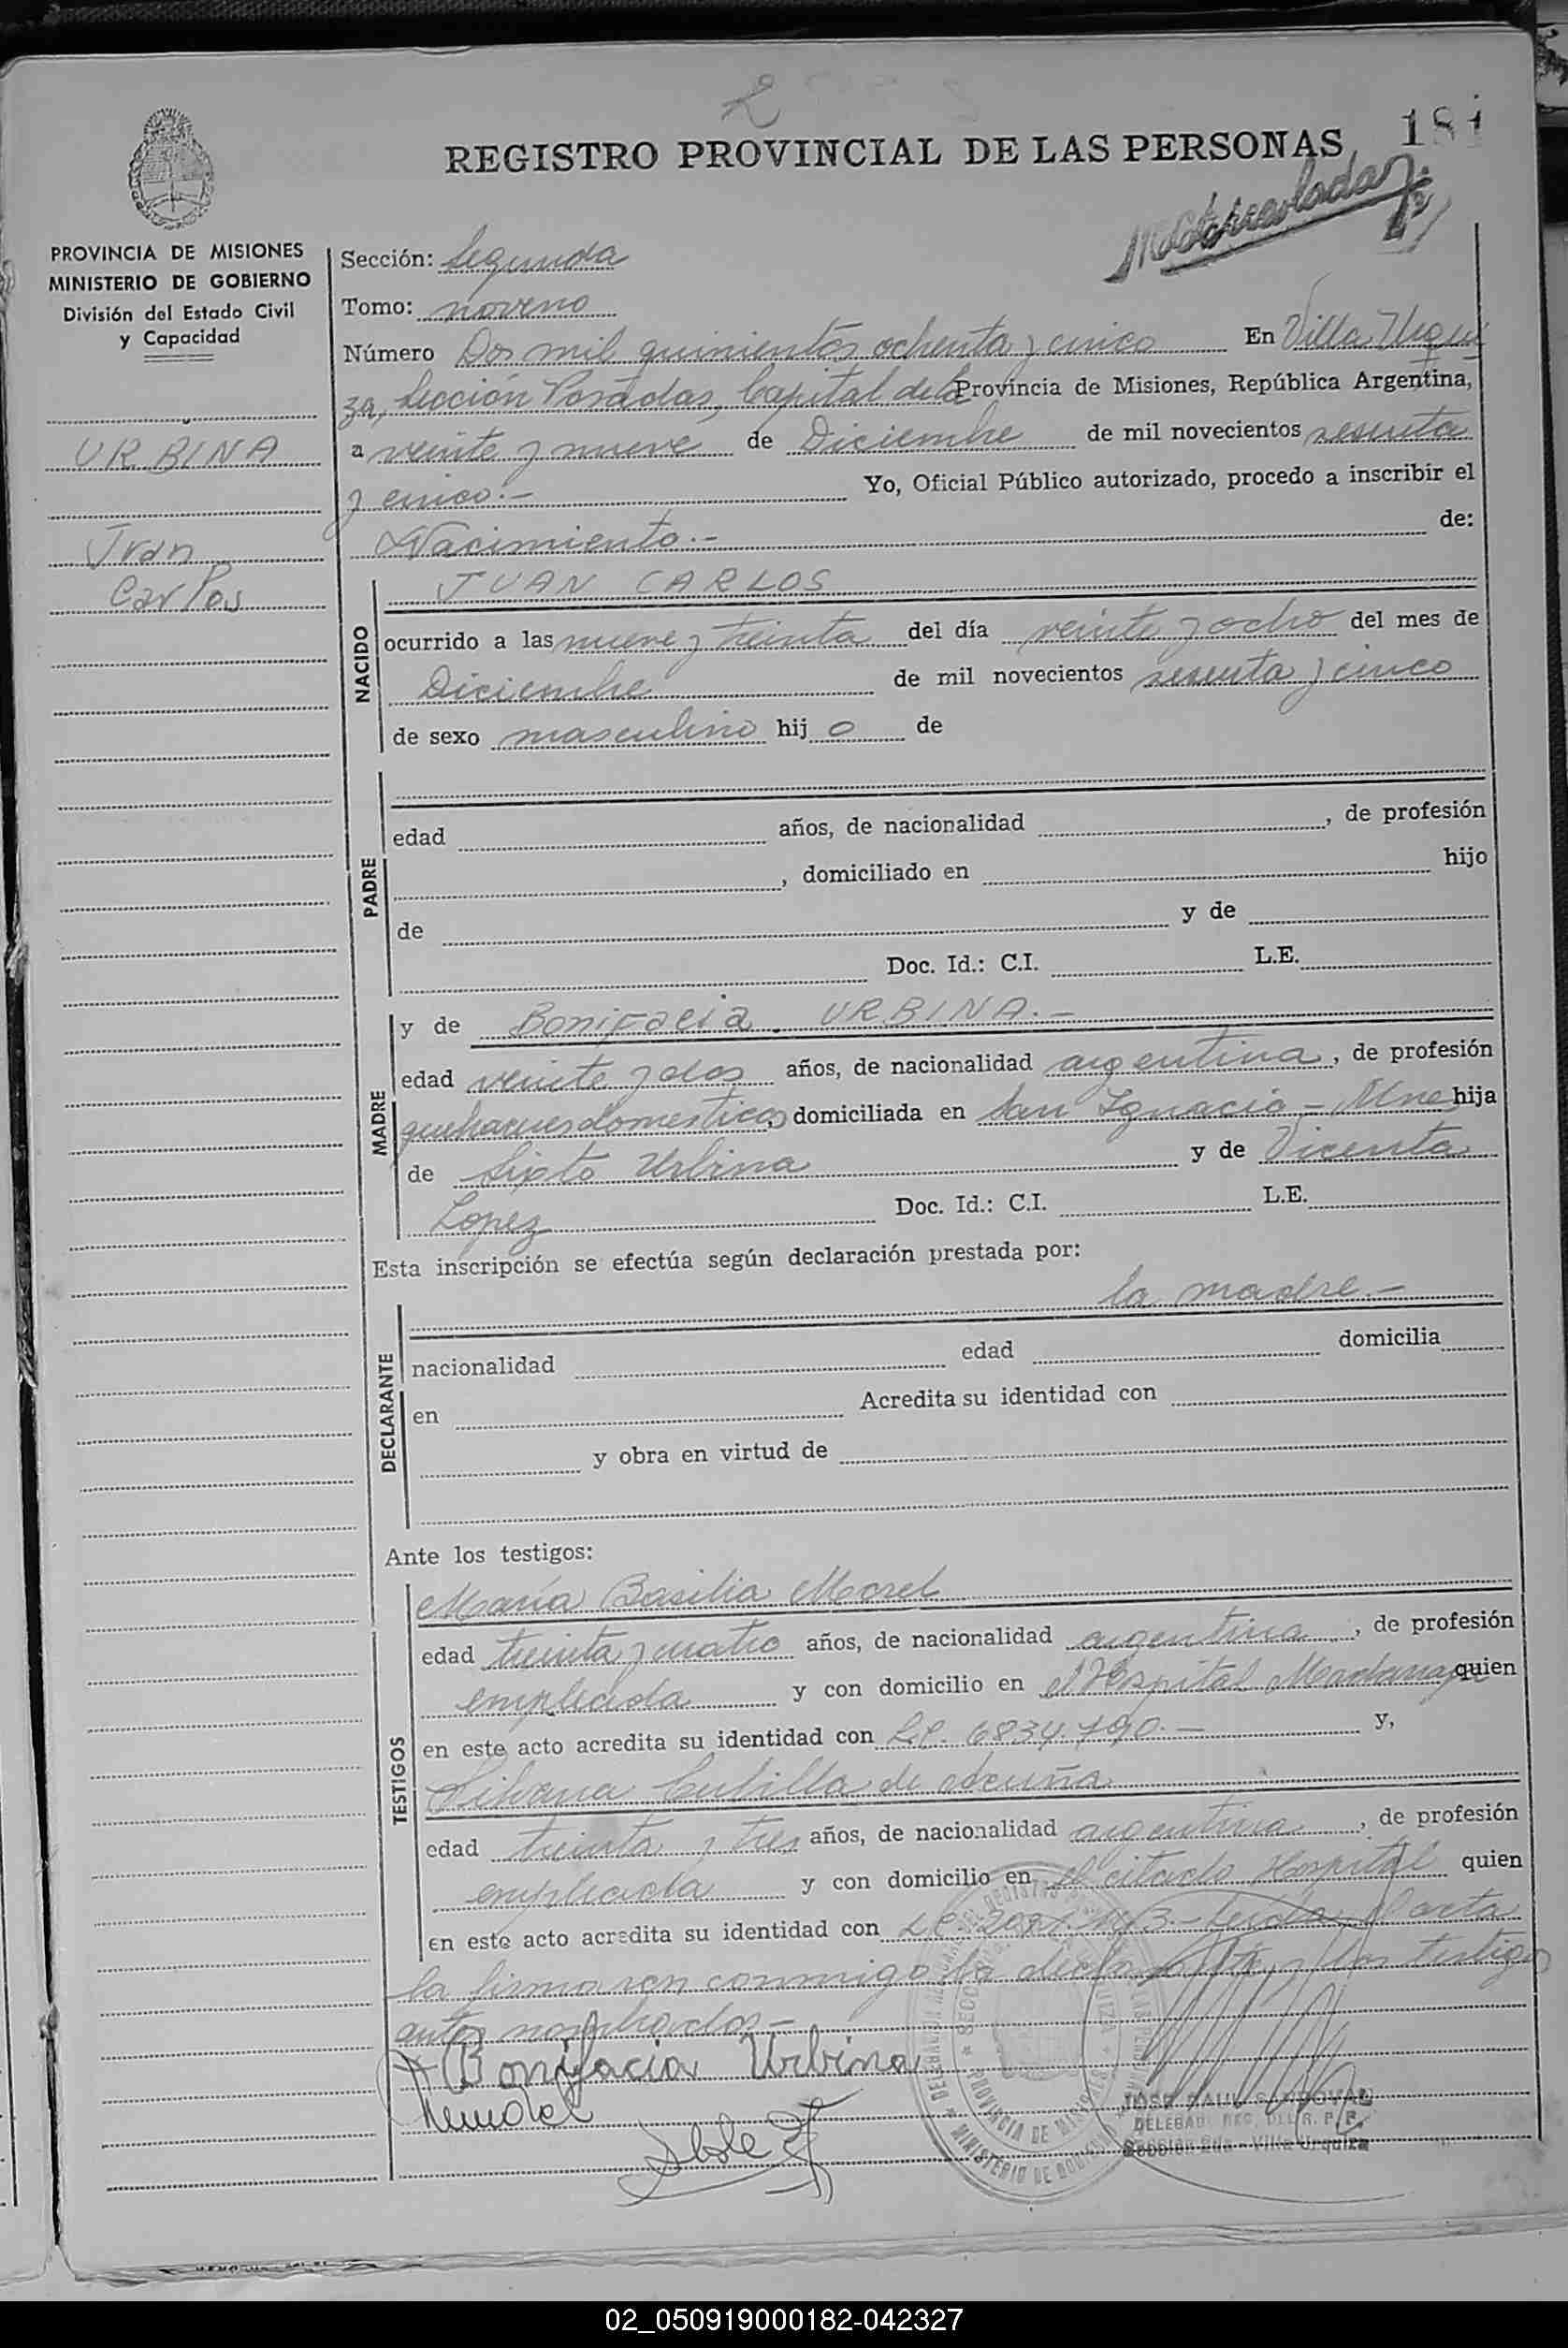 2
REGISTRO PROVINCIAL DE LAS PERSONAS
181
Matriculada
PROVINCIA DE MISIONES
MINISTERIO DE GOBIERNO
División del Estado Civil
y Capacidad
URBINA
Jvan
Carlos
Sección: Segunda
Tomo: noveno
Número Dos mil quinientos ochenta y cinco En Villa Urqui
za, Sección Posadas, Capital de la Provincia de Misiones, República Argentina,
a veinte y nueve de Diciembre de mil novecientos sesenta
y cinco.- Yo, Oficial Público autorizado, procedo a inscribir el
Nacimiento.- de:
NACIDO
JUAN CARLOS
ocurrido a las nueve y treinta del día veinte y ocho del mes de
Diciembre de mil novecientos sesenta y cinco
de sexo masculino hij o de
PADRE
edad años, de nacionalidad , de profesión
, domiciliado en hijo
de y de
Doc. Id.: C.I. L.E.
MADRE
y de Bonifacia URBINA.-
edad veinte y dos años, de nacionalidad argentina, de profesión
quehaceres domesticos, domiciliada en San Ignacio - Mnes hija
de Sixto Urbina y de Vicenta
Lopez Doc. Id.: C.I. L.E.
Esta inscripción se efectúa según declaración prestada por:
DECLARANTE
la madre.-
nacionalidad edad domicilia
en Acredita su identidad con
y obra en virtud de
Ante los testigos:
TESTIGOS
María Basilia Morel
edad treinta y cuatro años, de nacionalidad argentina, de profesión
empleada y con domicilio en el Hospital Madariaga quien
en este acto acredita su identidad con L.C. 6834.790.- y,
Cubilla de Acuña
edad treinta y tres años, de nacionalidad argentina, de profesión
empleada y con domicilio en el citado Hospital quien
en este acto acredita su identidad con L.C. Leída el acta
la firmaron conmigo la declarante y los testigos
antes nombrados.-
Bonifacia Urbina
JOSE RAUL SANDOVAL
DELEGADO REG. DEL R. P. P.
Sección 2da - Villa Urquiza
PROVINCIA DE MISIONES
MINISTERIO DE GOBIERNO
02_050919000182-042327